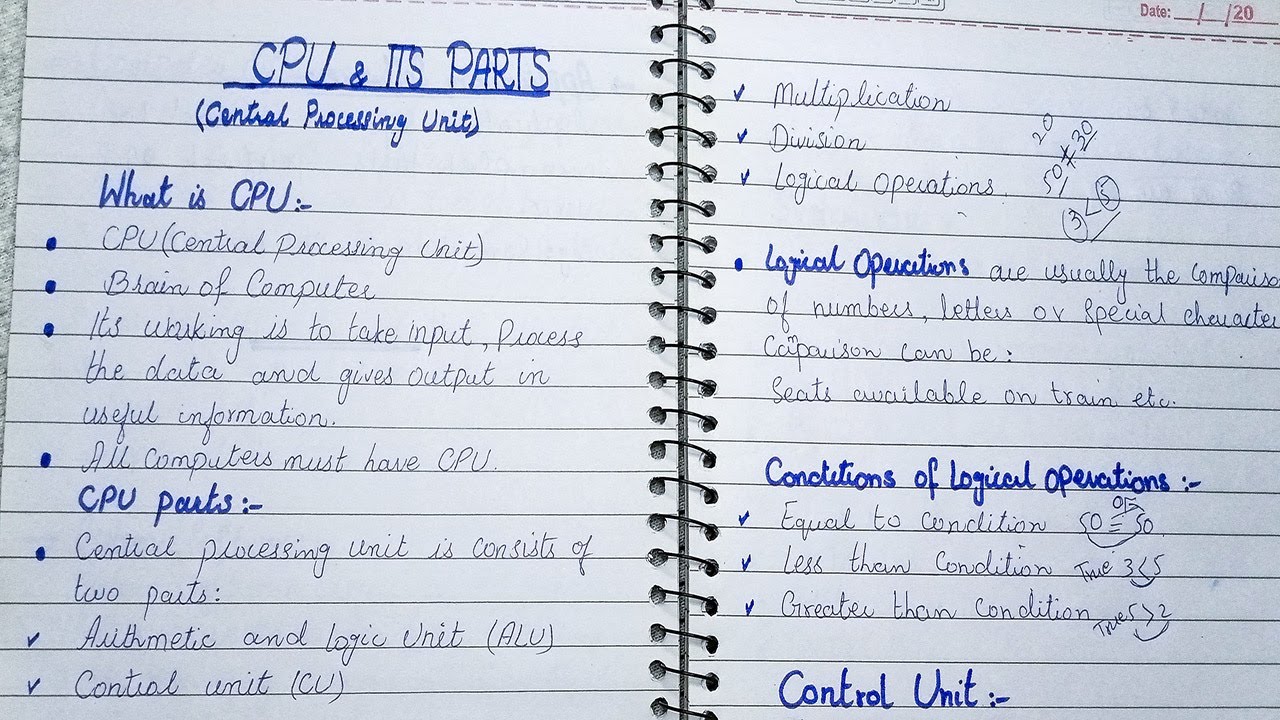 CPU & ITS PARTS
(Central Processing Unit)
What is CPU:-
CPU (Central Processing Unit)
Brain of Computer
Its working is to take input, Process
the data and gives output in
useful information.
All Computers must have CPU.
CPU parts:-
Central processing unit is consists of
two parts:
✓ Arithmetic and logic unit (ALU)
✓ Control unit (CU)
Date: __/__/20
✓ Multiplication
✓ Division
✓ Logical Operations
20
30
3 < 5
Logical Operations are usually the Compariso
of numbers, letters or special character
Comparison can be:
Seats available on train etc.
Conditions of Logical Operations:-
✓ Equal to condition 50 = 50
✓ Less than Condition True 3<5
✓ Greater than condition True 5>2
Control Unit:-